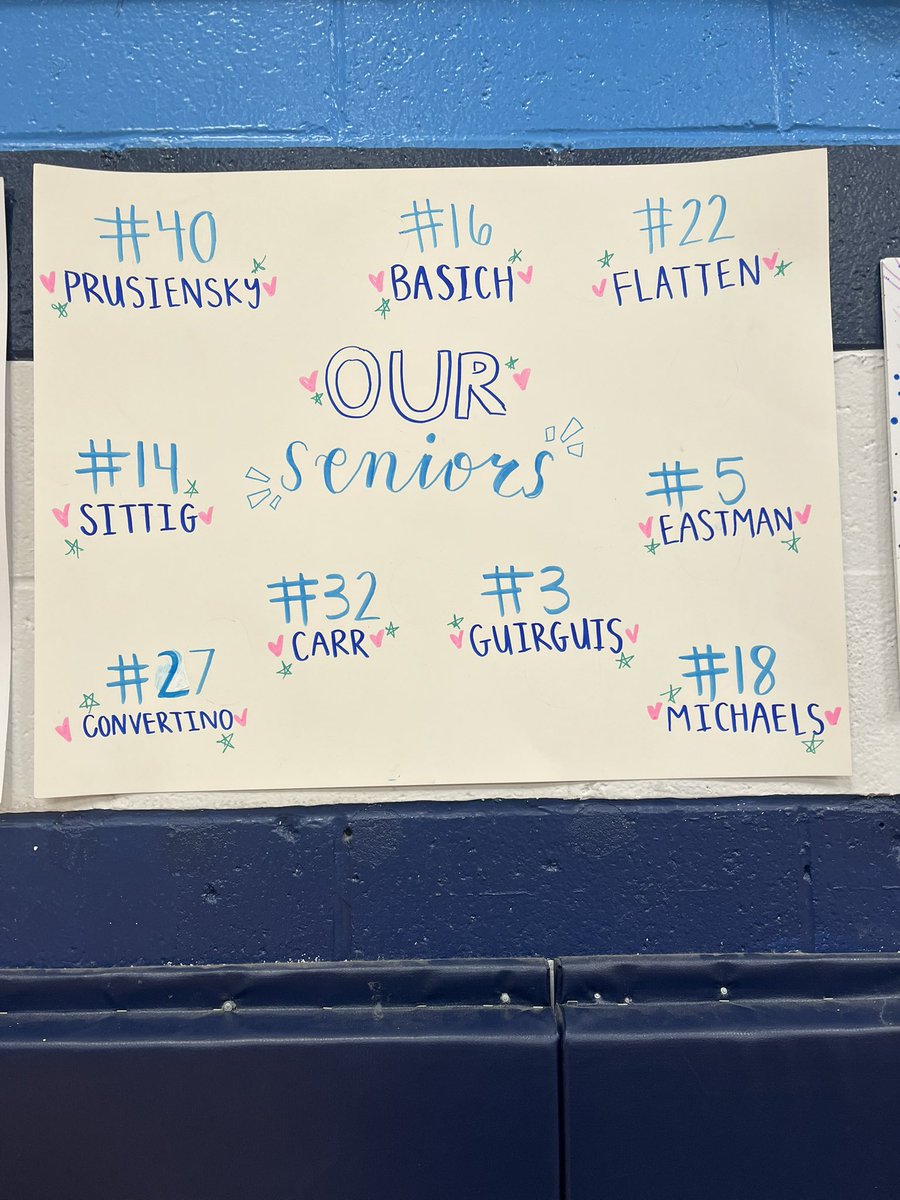 #40
PRUSIENSKY
#16
BASICH
#22
FLATTEN
OUR
seniors
#14
SITTIG
#5
EASTMAN
#32
CARR
#3
GUIRGUIS
#27
CONVERTINO
#18
MICHAELS